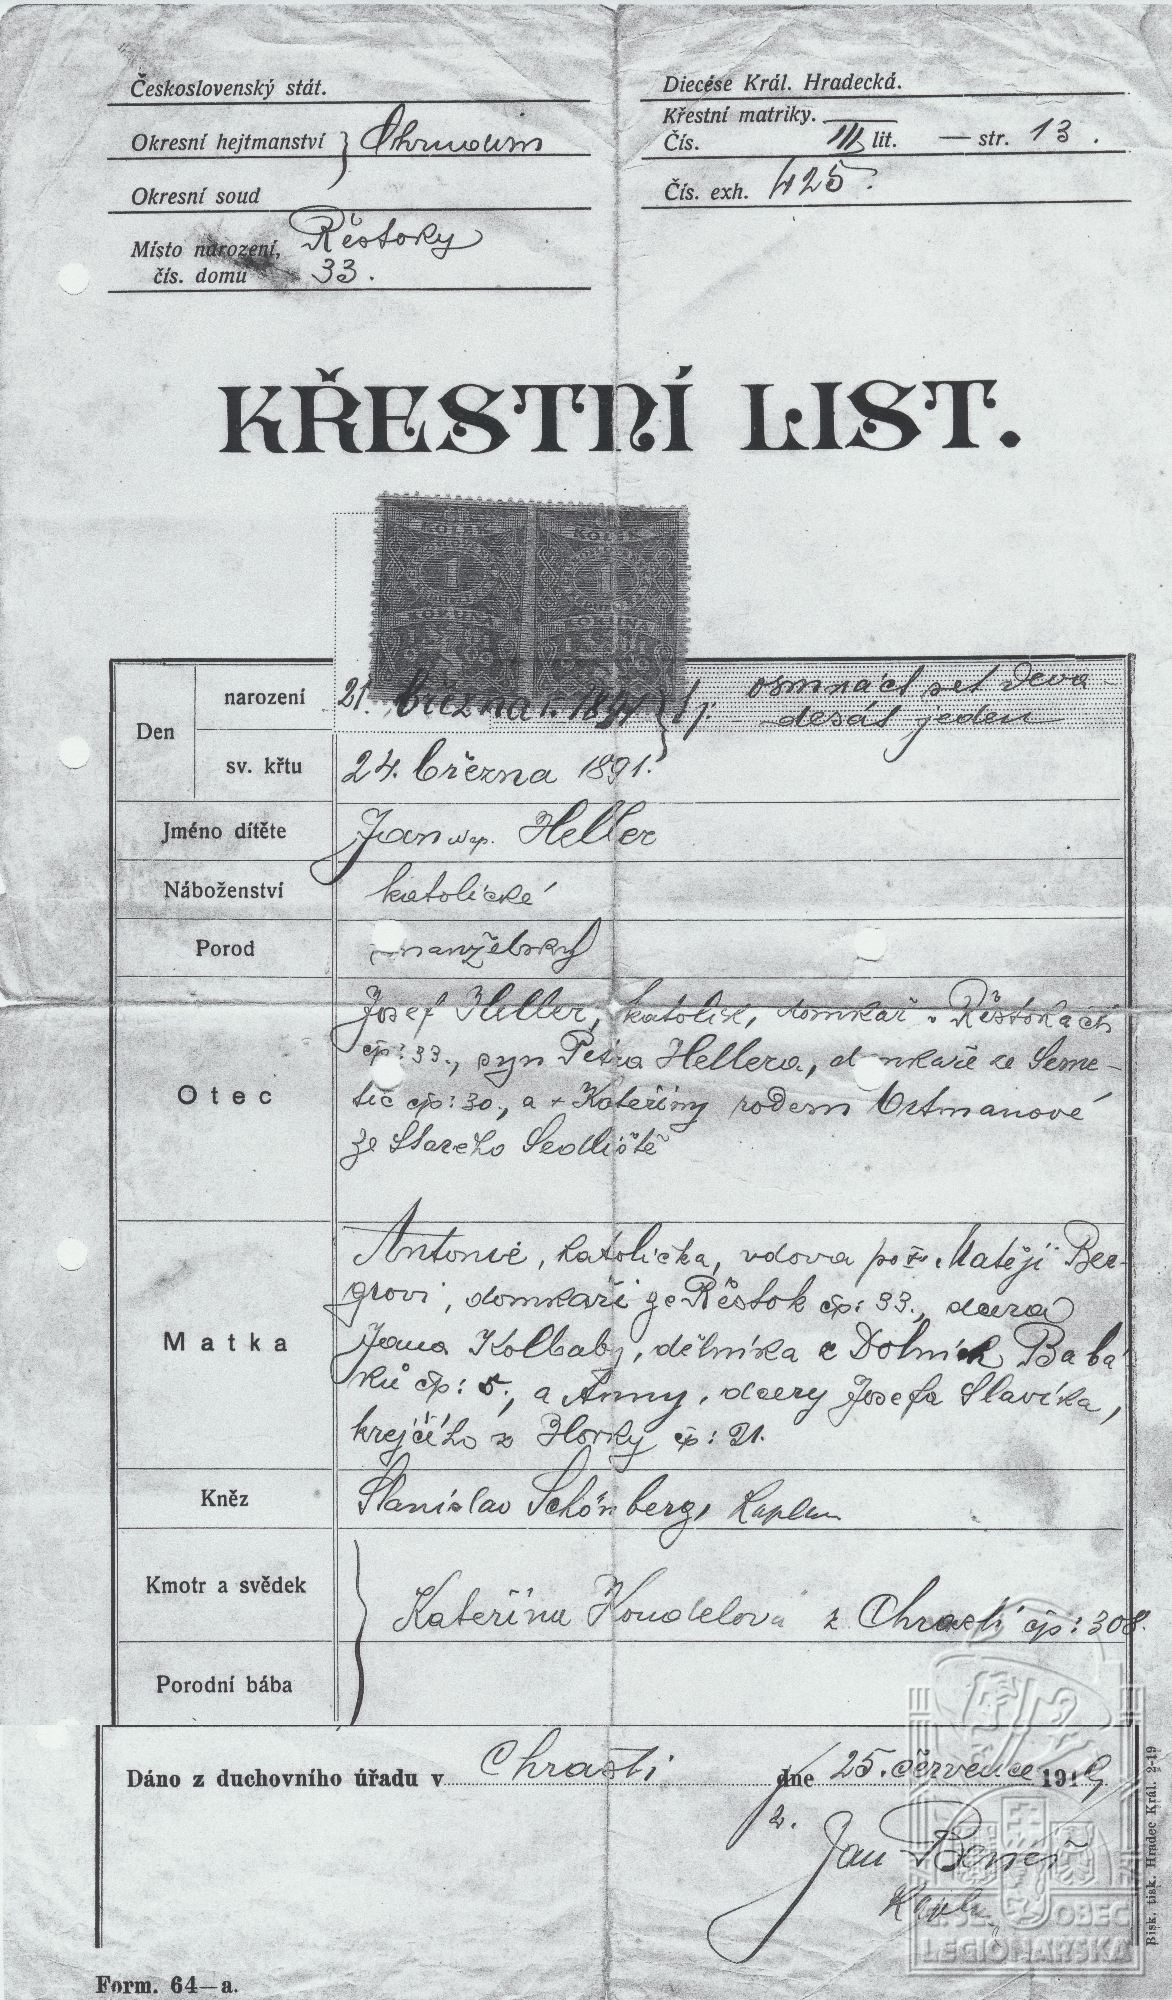 Československý stát.
Okresní hejtmanství } Chrudim
Okresní soud
Místo narození, Řestoky
čís. domu 33.
Diecése Král. Hradecká.
Křestní matriky.
Čís. III lit. — str. 13.
Čís. exh. 425.
KŘESTNÍ LIST.
KOLEK KOLEK
1 1
KORUNA KORUNA
Den
narození 21. března r. 1891 } tj. osmnáct set deva-
desát jeden
sv. křtu 24. března 1891.
Jméno dítěte Jan Heller
Náboženství katolické
Porod manželský
Otec
Josef Heller, katolík, domkář v Řestokách
čp: 33., syn Petra Hellera, domkáře ze Seme-
tic čp: 30., a + Kateřiny rodem Ortmanové
ze Starého Sedliště
Matka
Antonie, katolička, vdova po Matěji Ber-
grovi, domkáři ze Řestok čp: 33., dcera
Jana Kolbaby, dělníka z Dolních Babá-
ků čp: 5., a Anny, dcery Josefa Slavíka,
krejčího z Horky čp: 21.
Kněz Stanislav Schönberg, kaplan
Kmotr a svědek
Kateřina Koudelová z Chrasti čp: 308.
Porodní bába
Dáno z duchovního úřadu v Chrasti dne 25. července 1919
Jan Beneš
kaplan
Č.S. OBEC
LEGIONÁŘSKÁ
Bisk. tisk. Hradec Král. 2-19
Form. 64—a.